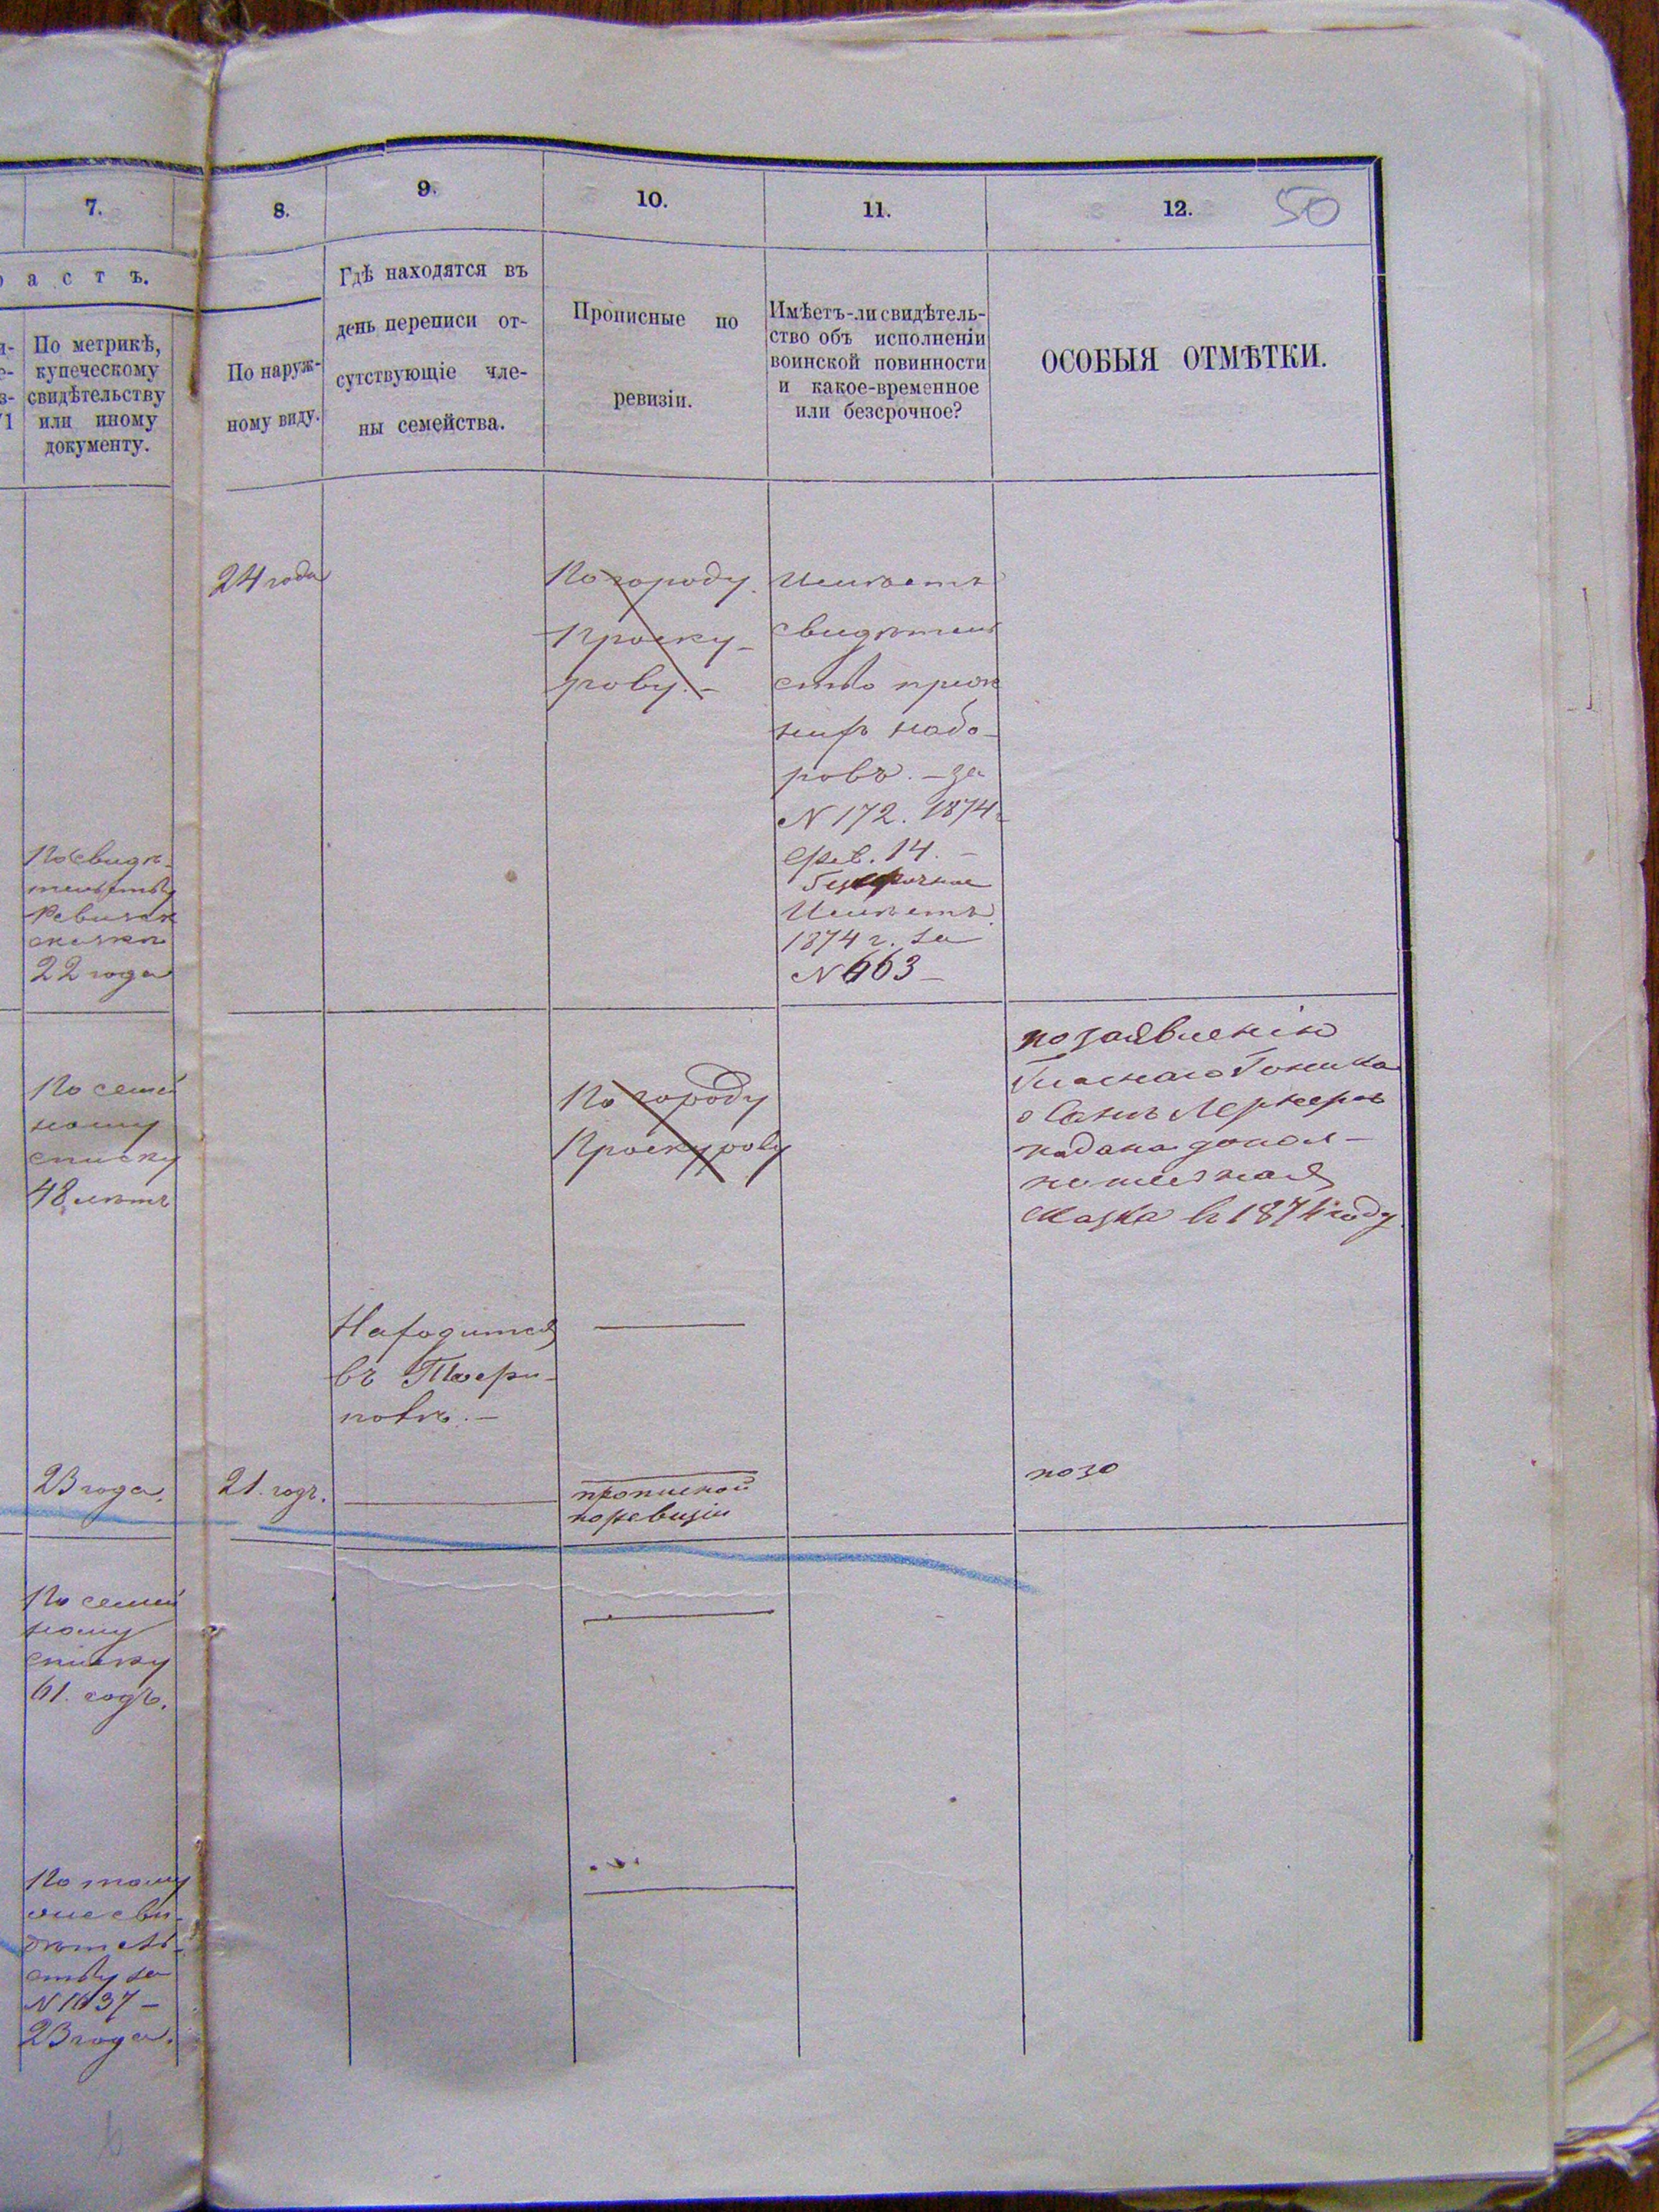 7.
8.
9.
10.
11.
12.
50
а с т ъ.
По метрикѣ,
купеческому
свидѣтельству
или иному
документу.
По наруж-
ному виду.
Гдѣ находятся въ
день переписи от-
сутствующіе чле-
ны семейства.
Прописные по
ревизіи.
Имѣетъ-ли свидѣтель-
ство объ исполненіи
воинской повинности
и какое-временное
или безсрочное?
ОСОБЫЯ ОТМѢТКИ.
24 года
По городу
Проску-
рову.-
Имѣетъ
свидѣтель
ство преж
нихъ набо-
ровъ. - за
N 172. 1874 г
Фев. 14. -
Имѣетъ
1874 г. за
N 663 -
По свидѣ-
тельству
сказки
22 года
По семей
ному
списку
48 лѣтъ
По городу
Проскурову
по заявленію
Гласнаго
подана допол-
нительная
сказка въ 1874 году
Находится
въ
23 года.
21. годъ.
пропиской
по ревизіи
по 30
По семей
ному
списку
61. годъ.
По тому
же сви-
дѣтель-
ству за
N 1637 -
23 года.